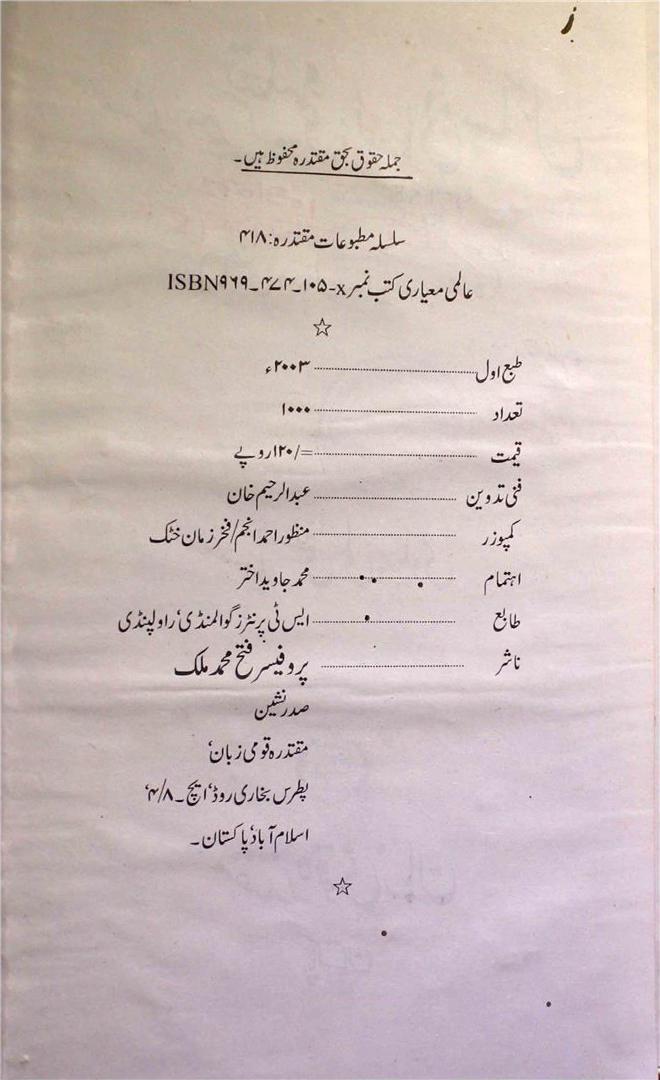 جملہ حقوق بحق مقتدرہ محفوظ ہیں۔
سلسلہ مطبوعات مقتدرہ: ۴۱۸
عالمی معیاری کتب نمبر ISBN ۹۶۹۔۴۷۴۔۱۰۵-x
☆
طبع اول ............ ۲۰۰۳ء
تعداد ............ ۱۰۰۰
قیمت ............ =/۱۲۰ روپے
فنی تدوین ............ عبدالرحیم خان
کمپوزر ............ منظور احمد انجم/فخر زمان خٹک
اہتمام ............ محمد جاوید اختر
طابع ............ ایس ٹی پرنٹرز گوالمنڈی، راولپنڈی
ناشر ............ پروفیسر فتح محمد ملک
صدر نشین
مقتدرہ قومی زبان،
پطرس بخاری روڈ، ایچ۔۴/۸،
اسلام آباد، پاکستان۔
☆